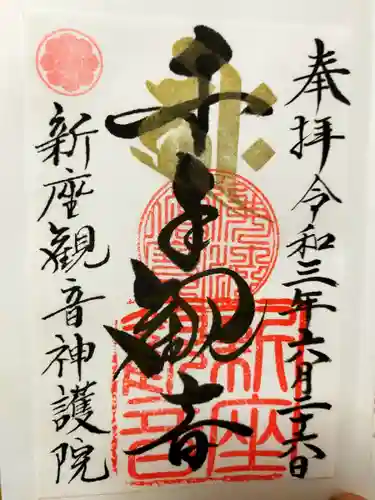 奉拝令和三年六月二十六日
千手観音
新座観音神護院